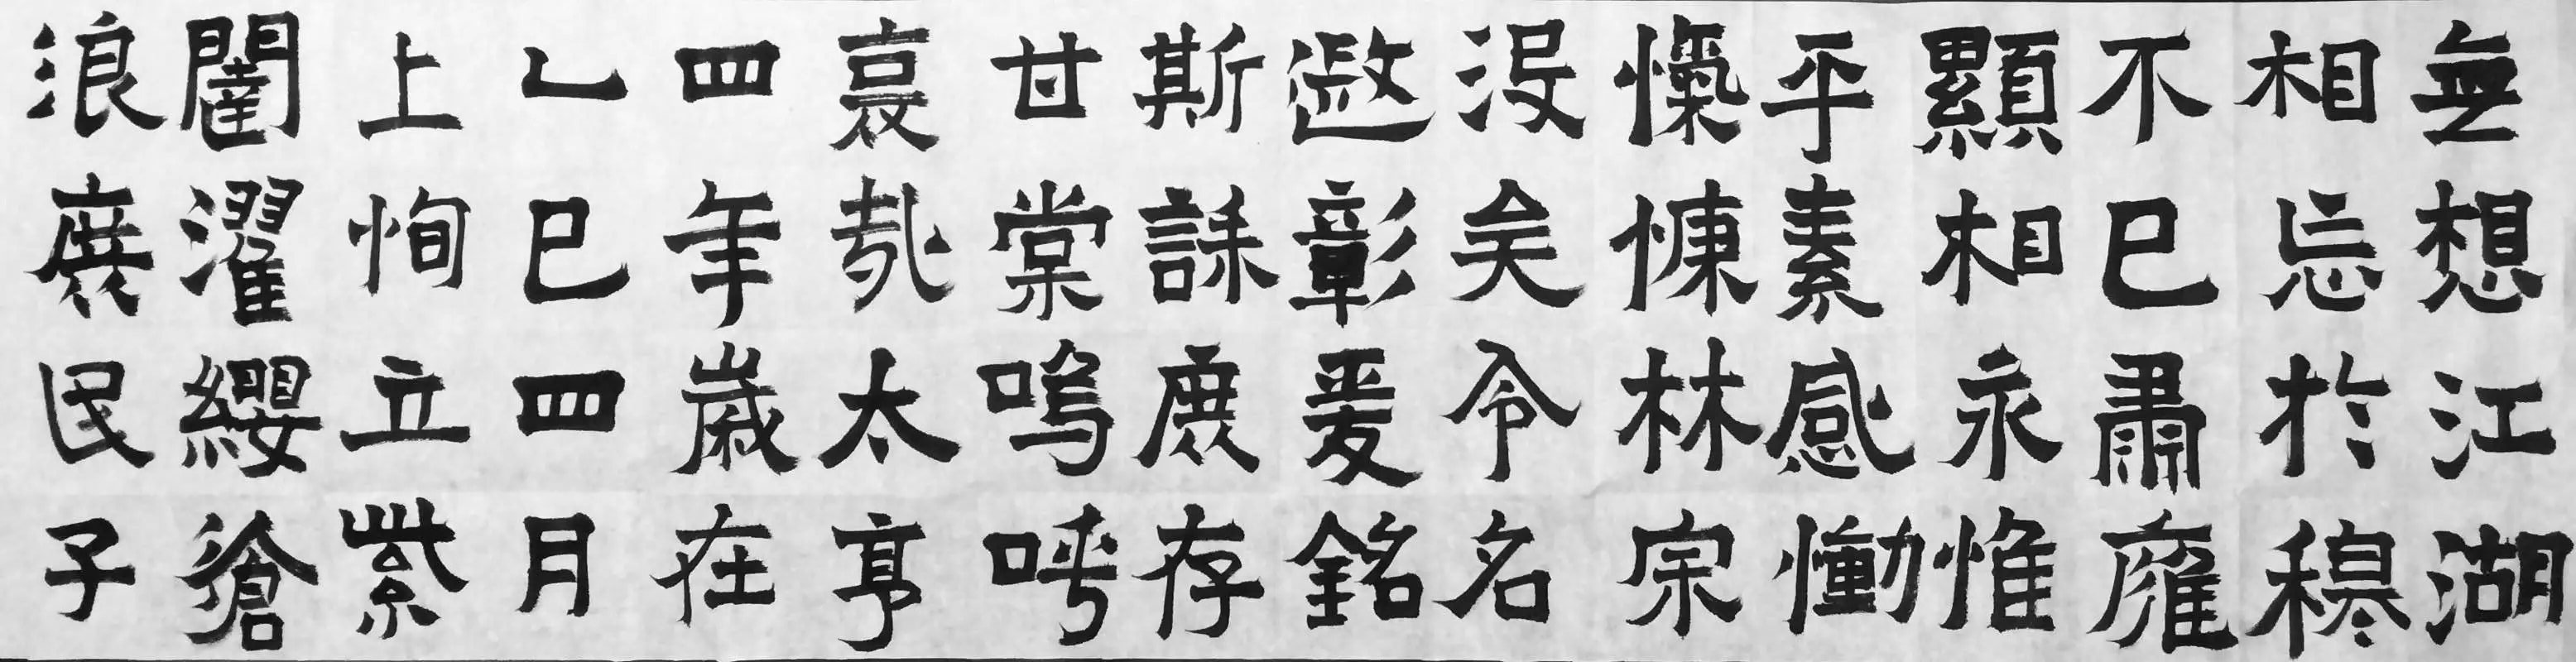 無想江湖
相忘於穆
不已肅雍
顯相永惟
平素感慟
愾慷林宗
没矣令名
遐彰爰銘
斯誄庶存
甘棠嗚呼
哀哉太亨
四年歲在
乙巳四月
上恂立紫
閨濯纓滄
浪庶民子